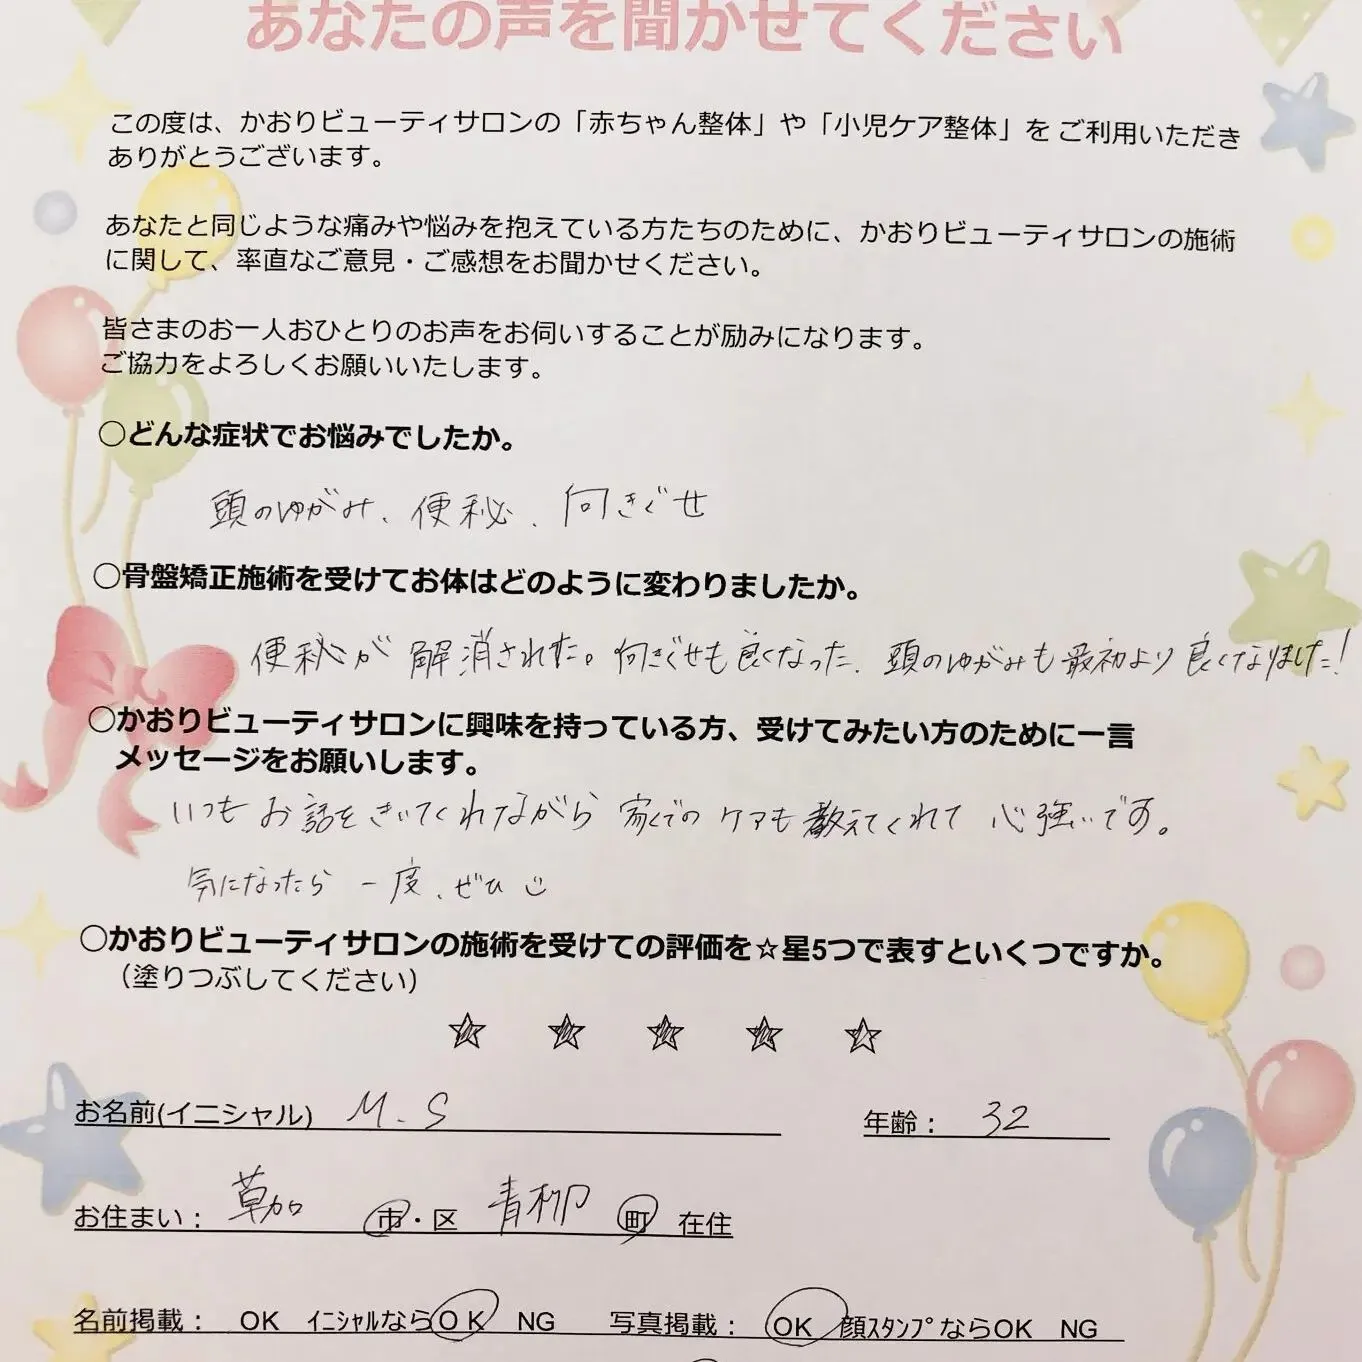 あなたの声を聞かせてください
この度は、かおりビューティサロンの「赤ちゃん整体」や「小児ケア整体」を ご利用いただき
ありがとうございます。
あなたと同じような痛みや悩みを抱えている方たちのために、かおりビューティサロンの施術
に関して、率直なご意見・ご感想をお聞かせください。
皆さまのお一人おひとりのお声をお伺いすることが励みになります。
ご協力をよろしくお願いいたします。
○どんな症状でお悩みでしたか。
頭のゆがみ、便秘、向きぐせ
○骨盤矯正施術を受けてお体はどのように変わりましたか。
便秘が解消された。向きぐせも良くなった、頭のゆがみも最初より良くなりました!
○かおりビューティサロンに興味を持っている方、受けてみたい方のために一言
メッセージをお願いします。
いつもお話をきいてくれながら家でのケアも教えてくれて心強いです。
気になったら一度、ぜひ
○かおりビューティサロンの施術を受けての評価を☆星5つで表すといくつですか。
(塗りつぶしてください)
☆ ☆ ☆ ☆ ☆
お名前(イニシャル) M.S 年齢: 32
お住まい: 草加 市・区 青柳 町 在住
名前掲載: OK イニシャルならOK NG 写真掲載: OK 顔スタンプならOK NG